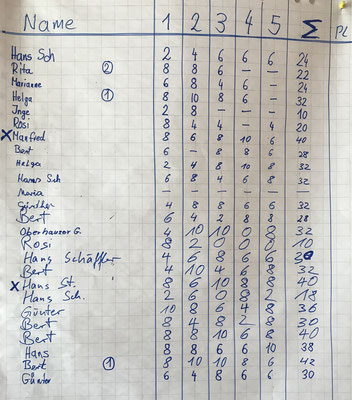 Name 1 2 3 4 5 Σ PL
Hans Sch 2 4 6 6 6 24
Rita ② 8 8 6 – – 22
Marianne 6 8 4 6 – 24
Helga ① 8 10 8 6 – 32
Inge 2 8 – – – 10
Rosi 8 4 4 – 4 20
X Manfred 8 6 8 10 6 40
Bert 6 – 8 8 6 28
Helga 2 4 8 10 8 32
Hanns Sch 6 8 4 6 8 32
Maria – – – – – –
Günther 4 8 8 6 6 32
Bert 6 4 2 8 8 28
Oberhauzer G. 4 10 10 0 8 32
Rosi 8 2 0 0 0 10
Hans Schäffer 4 6 8 6 6
Bert 4 10 4 6 8 32
X Hans St. 8 6 10 8 8 40
Hans Sch. 2 6 0 8 2 18
Günter 10 8 6 4 8 36
Bert 8 4 8 2 8 30
Bert 8 8 10 6 8 40
Hans 8 8 6 6 10 38
Bert ① 8 10 10 8 6 42
Günter 6 4 8 6 6 30